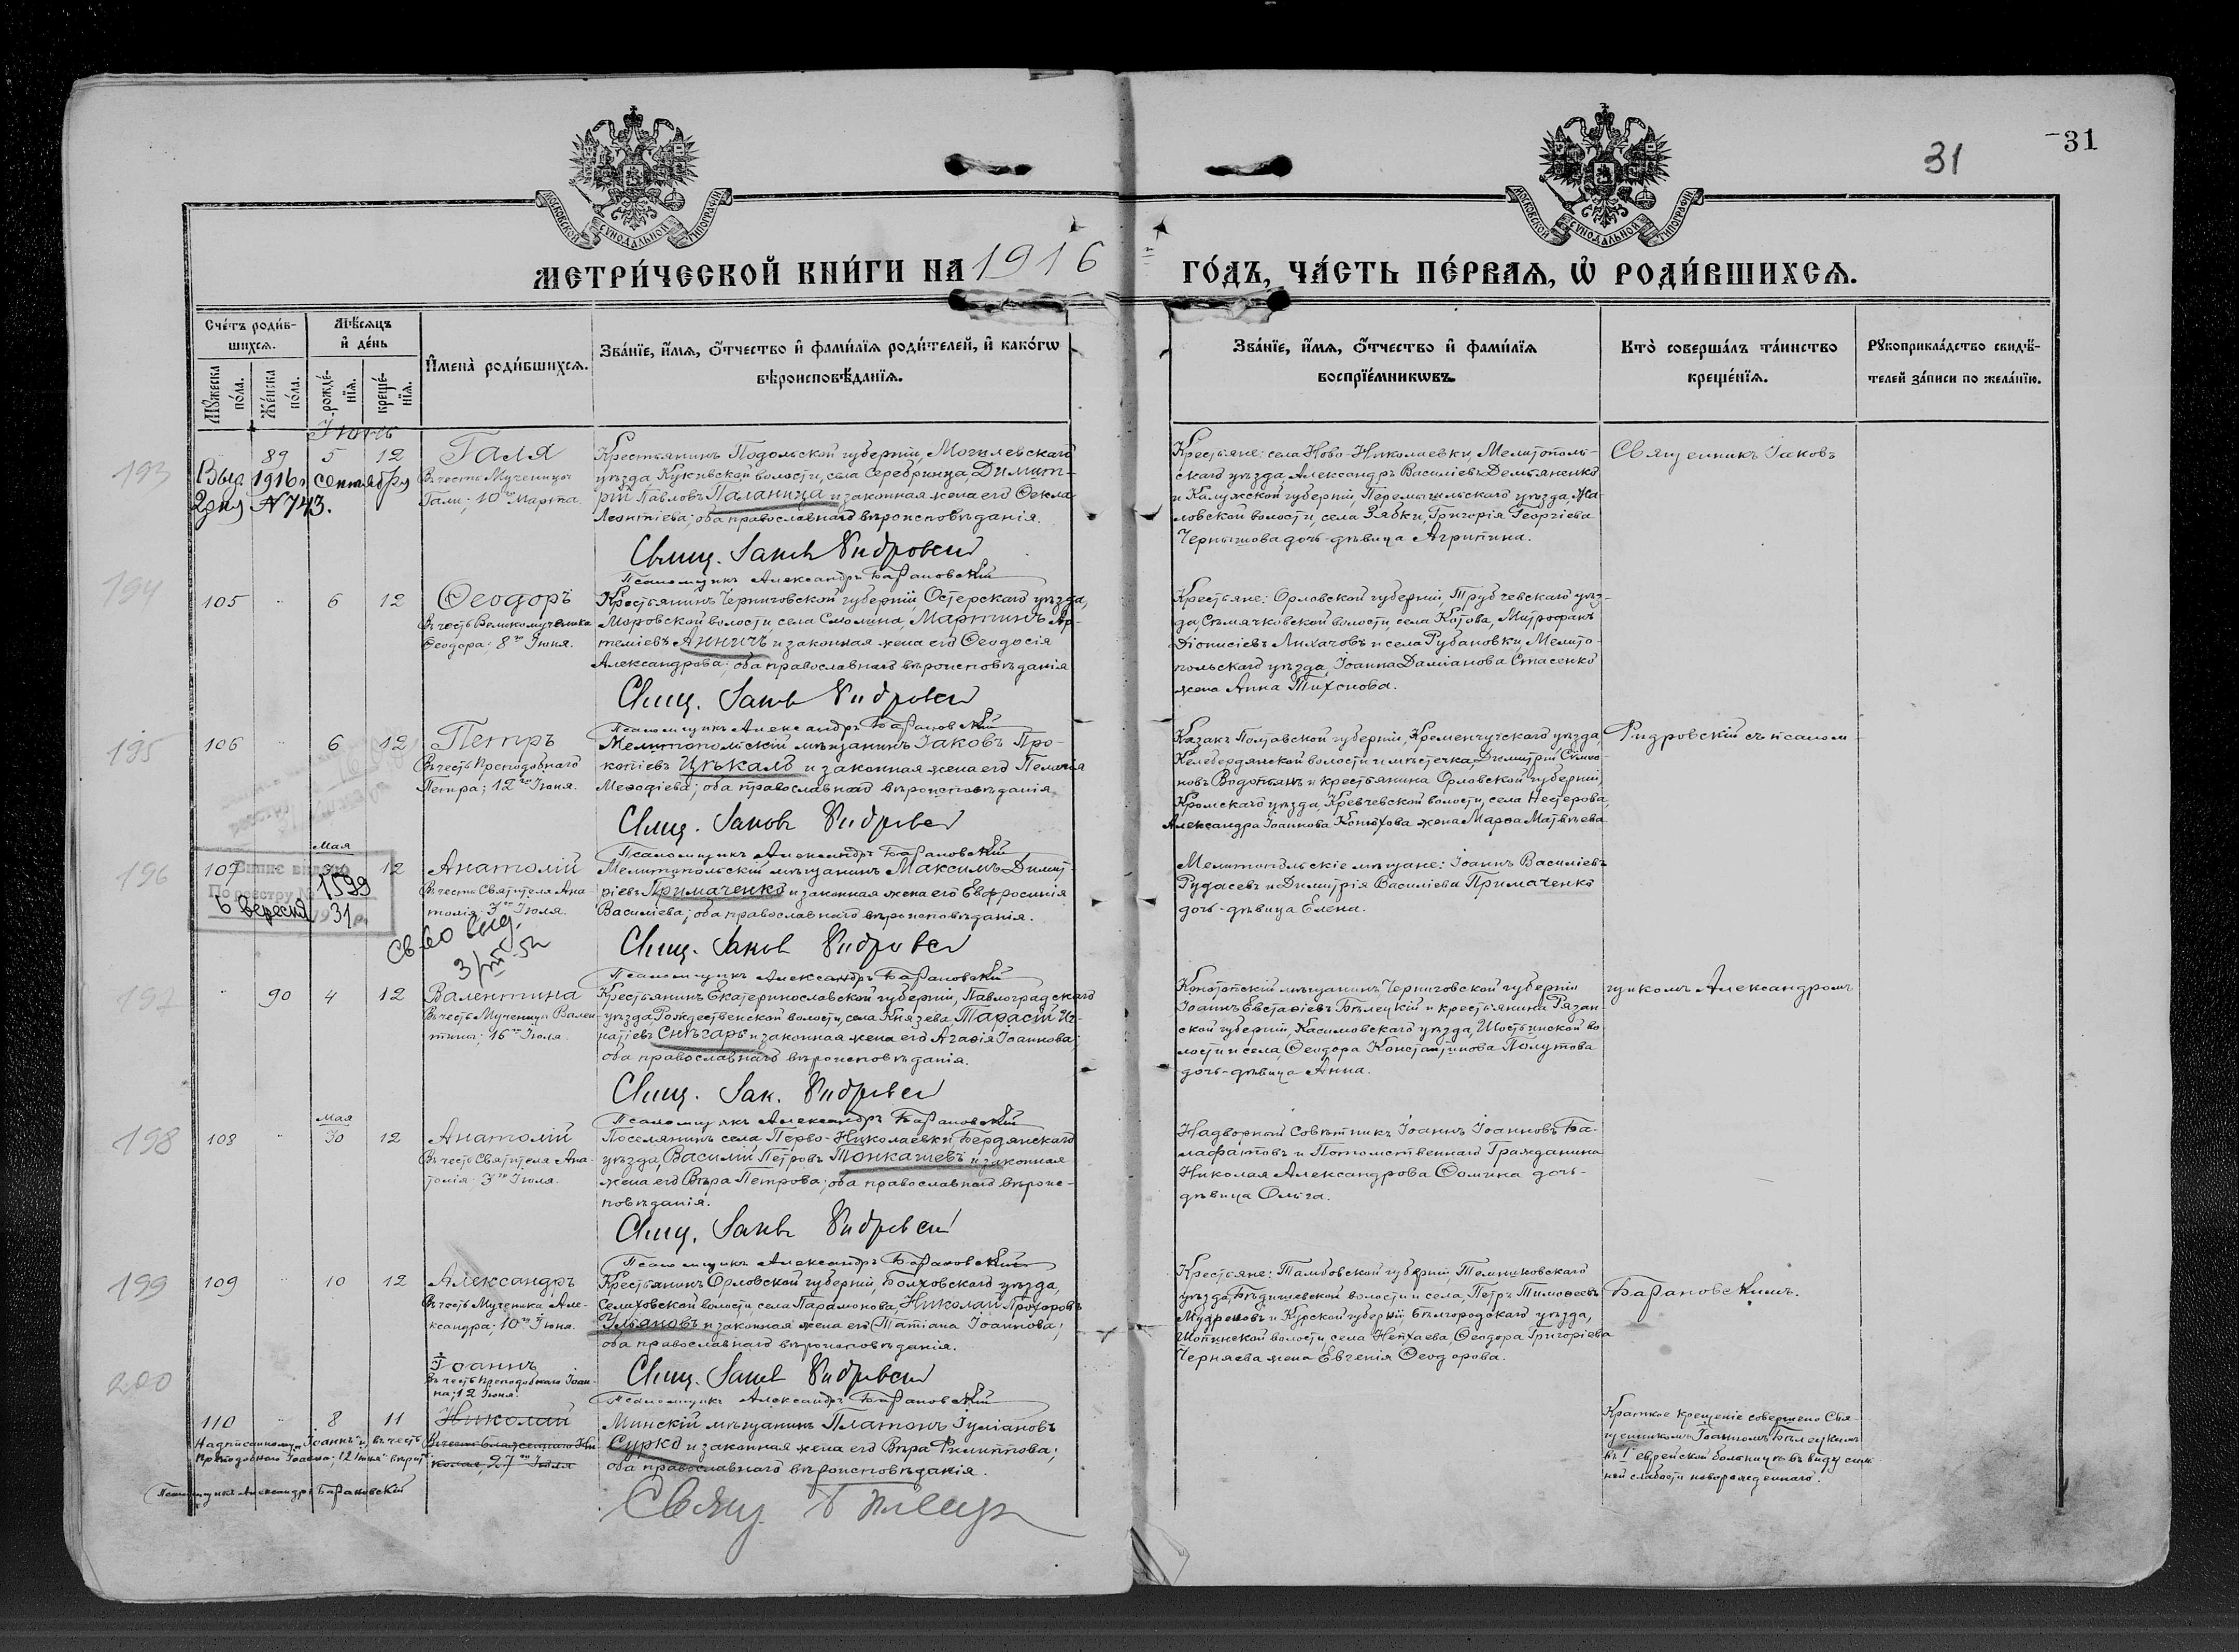 31
31
МОСКОВСКОЙ СУНОДАЛЬНОЙ ТИПОГРАФІИ
МОСКОВСКОЙ СУНОДАЛЬНОЙ ТИПОГРАФІИ
МЕТРИ́ЧЕСКОЙ КНИ́ГИ НА 1916 ГО́ДЪ, ЧА́СТЬ ПЕ́РВАЯ, Ѡ РОДИ́ВШИХСЯ.
Сче́тъ роди́в-
шихся.
Мѣ́сяцъ
и҆ де́нь
Му́жеска по́ла.
Же́нска по́ла.
рожде́-
нїя.
креще́-
нїя.
И҆мена̀ роди́вшихся.
Зва́нїе, и҆́мя, ѻ҆́тчество и҆ фами́лїя роди́телей, и҆ како́гѡ
вѣроисповѣ́данїя.
Зва́нїе, и҆́мя, ѻ҆́тчество и҆ фами́лїя
воспрїе́мникѡвъ.
Кто̀ соверша́лъ та́инство
креще́нїя.
Рꙋкоприкла́дство свидѣ́-
телей за́писи по жела́нїю.
Іюнь
193
89 5 12
Выд. 1916 г. сентября
2 дня № 743.
Галя
Въ честь Мученицы
Гали; 10го Марта.
Крестьянинъ Подольской губерніи, Могилевскаго
уѣзда, Кукавской волости, села Серебринца, Димит-
рій Павловъ Паланица и законная жена его Ѳекла
Леонтіева; оба православнаго вѣроисповѣданія.
Свящ. Іаковъ Ридровскій
Псаломщикъ Александръ Барановскій
Крестьяне: села Ново-Николаевки, Мелитополь-
скаго уѣзда, Александръ Василіевъ Демьяненко
и Калужской губерніи, Перемышльскаго уѣзда,
ловской волости, села Зябки, Григорія Георгіева
Чернышова дочь-дѣвица Агрипина.
Священникъ Іаковъ
194
105 " 6 12
Ѳеодоръ
Въ честь Великомученика
Ѳеодора: 8го Іюня.
Крестьянинъ Черниговской губерніи, Остерскаго уѣзда,
Моровской волости, села Смолина, Мартинъ Ар-
теміевъ Анничъ и законная жена его Ѳеодосія
Александрова; оба православнаго вѣроисповѣданія
Свящ. Іаковъ Ридровскій
Псаломщикъ Александръ Барановскій
Крестьяне: Орловской губерніи, Трубчевскаго уѣз-
да, Салмачковской волости, села Котова, Митрофанъ
Діонисіевъ Лихачовъ и села Рубановки, Мелито-
польскаго уѣзда, Іоанна Даміанова Стасенко
жена Анна Тихонова.
195
106 " 6 12
Петръ
Въ честь Преподобнаго
Петра; 12го Іюня.
Мелитопольскій мѣщанинъ Іаковъ Про-
копіевъ Цѣкало и законная жена его Пелагія
Меѳодіева; оба православнаго вѣроисповѣданія
Свящ. Іаковъ Ридровскій
Псаломщикъ Александръ Барановскій
Казакъ Полтавской губерніи, Кременчугскаго уѣзда,
Келебердянской волости и мѣстечка, Димитрій Симео-
новъ Водотыкъ и крестьянина Орловской губерніи,
Кромскаго уѣзда, Кревчевской волости, села Нестерова,
Александра Іоаннова Конюхова жена Марѳа Матвѣева
Ридровскій съ псалом-
196
Мая
107 12
Випис видано
По реєстру № 1599
6 вересня 1931 р.
Св-во выд.
3/VII-52
Анатолій
Въ честь Святителя Ана-
толія; 3го Іюля.
Мелитопольскій мѣщанинъ Максимъ Димит-
ріевъ Примаченко и законная жена его Евфросинія
Василіева; оба православнаго вѣроисповѣданія.
Свящ. Іаковъ Ридровскій
Псаломщикъ Александръ Барановскій
Мелитопольскіе мѣщане: Іоаннъ Василіевъ
Рудасевъ и Димитрія Василіева Примаченко
дочь-дѣвица Елена.
197
" 90 4 12
Валентина
Въ честь Мученицы Вален-
тины; 16го Іюля.
Крестьянинъ Екатеринославской губерніи, Павлоградскаго
уѣзда, Рождественской волости, села Князева, Тарасій Иг-
натіевъ Снѣсарь и законная жена его Агаѳія Іоаннова;
оба православнаго вѣроисповѣданія.
Свящ. Іак. Ридровскій
Псаломщикъ Александръ Барановскій
Конотопскій мѣщанинъ, Черниговской губерніи
Іоаннъ Евстаѳіевъ Бѣлецкій и крестьянина Рязан-
ской губерніи, Касимовскаго уѣзда, Шостьинской во-
лости и села, Ѳеодора Константинова Полутова
дочь-дѣвица Анна.
щикомъ Александромъ
198
Мая
108 " 30 12
Анатолій
Въ честь Святителя Ана-
толія: 3го Іюля.
Поселянинъ села Перво-Николаевки Бердянскаго
уѣзда, Василій Петровъ Тонкашевъ и законная
жена его Вѣра Петрова; оба православнаго вѣроис-
повѣданія.
Свящ. Іаковъ Ридровскій
Псаломщикъ Александръ Барановскій
Надворный Совѣтникъ Іоаннъ Іоанновъ Ба-
лафатовъ и Потомственнаго Гражданина
Николая Александрова Ѳомина дочь-
дѣвица Ольга.
199
109 " 10 12
Александръ
Въ честь Мученика Але-
ксандра; 10го Іюня.
Крестьянинъ Орловской губерніи, Болховскаго уѣзда,
Селиховской волости, села Парамонова, Николай Прохоровъ
Ульяновъ и законная жена его Татіана Іоаннова;
оба православнаго вѣроисповѣданія.
Свящ. Іаковъ Ридровскій
Псаломщикъ Александръ Барановскій
Крестьяне: Тамбовской губерніи, Темниковскаго
уѣзда, Бѣдишевской волости и села, Петръ Тимоѳеевъ
Мудреновъ и Курской губерніи, Бѣлгородскаго уѣзда,
Шопинской волости, села Непхаева, Ѳеодора Григоріева
Черняева жена Евгенія Ѳеодорова.
Барановскимъ.
200
Іоаннъ
Въ честь Преподобнаго Іоан-
на; 12 Іюня.
110 " 8 11
Николай
Въ честь блаженнаго Ни-
колая, 27го Іюля
Надписанному „Іоаннъ“ и „въ честь
Преподобнаго Іоанна; 12 Іюня“ вѣрить
Псаломщикъ Александръ Барановскій
Минскій мѣщанинъ Платонъ Іуліановъ
Сурко и законная жена его Вѣра Филиппова;
оба православнаго вѣроисповѣданія.
Свящ. Бѣлецкій
Краткое крещеніе совершено Свя-
щенникомъ Іоанномъ Бѣлецкимъ
въ 1й еврейской больницѣ въ виду силь-
ной слабости новорожденнаго.